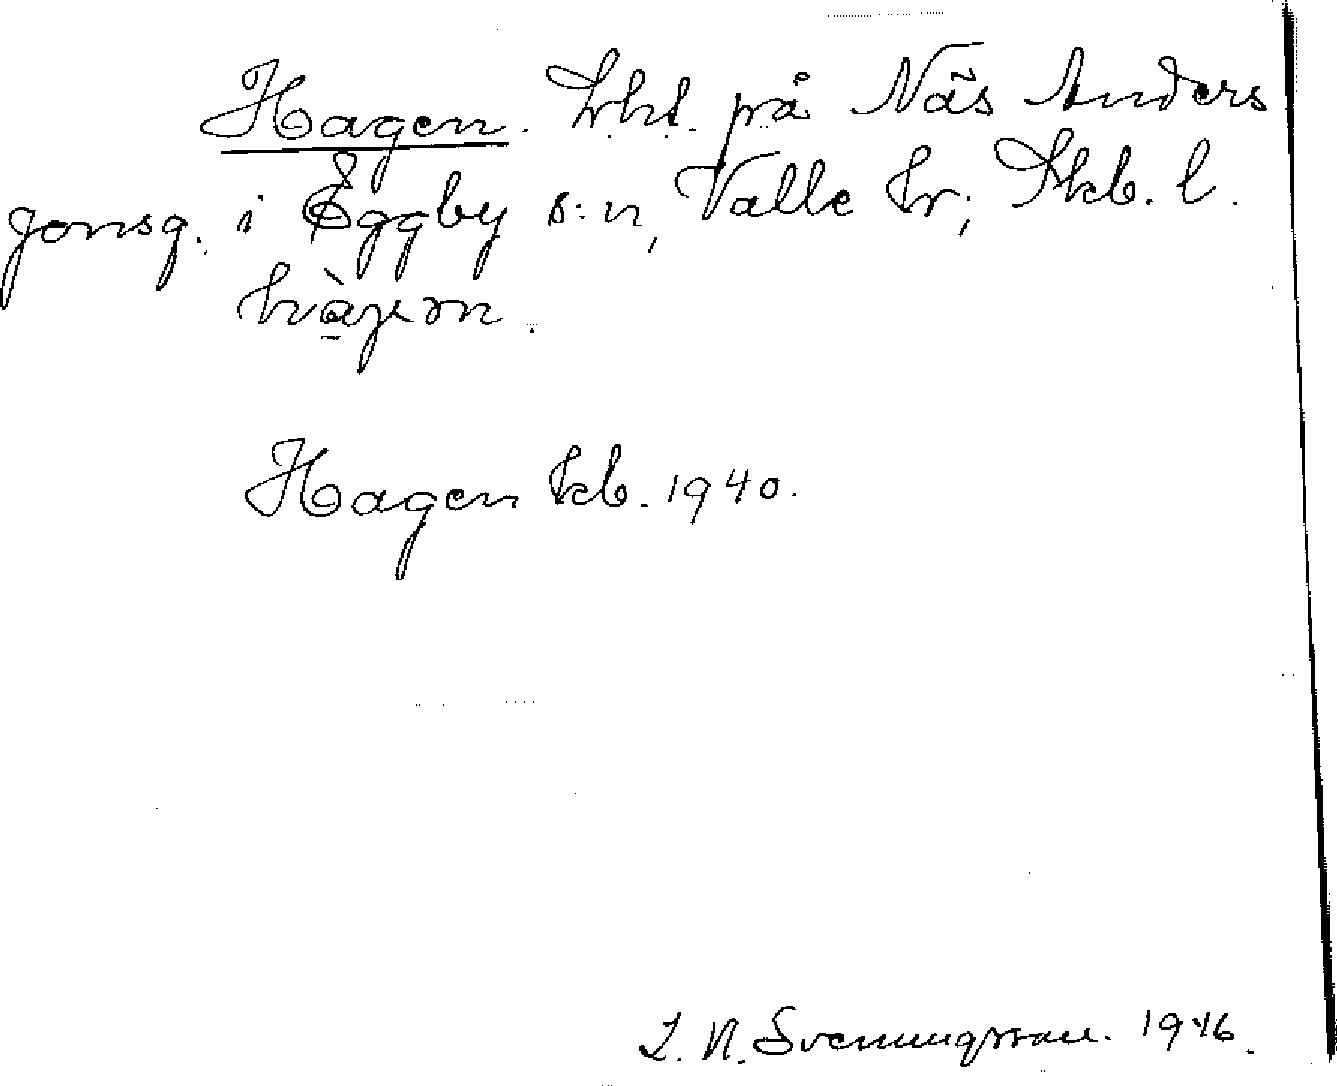 Hagen. Lht. på Näs Anders
jonsg. i Eggby s:n, Valle hr; Skb. l.
hàgen.
Hagen kb. 1940.
L. N. Svenungsson. 1946.